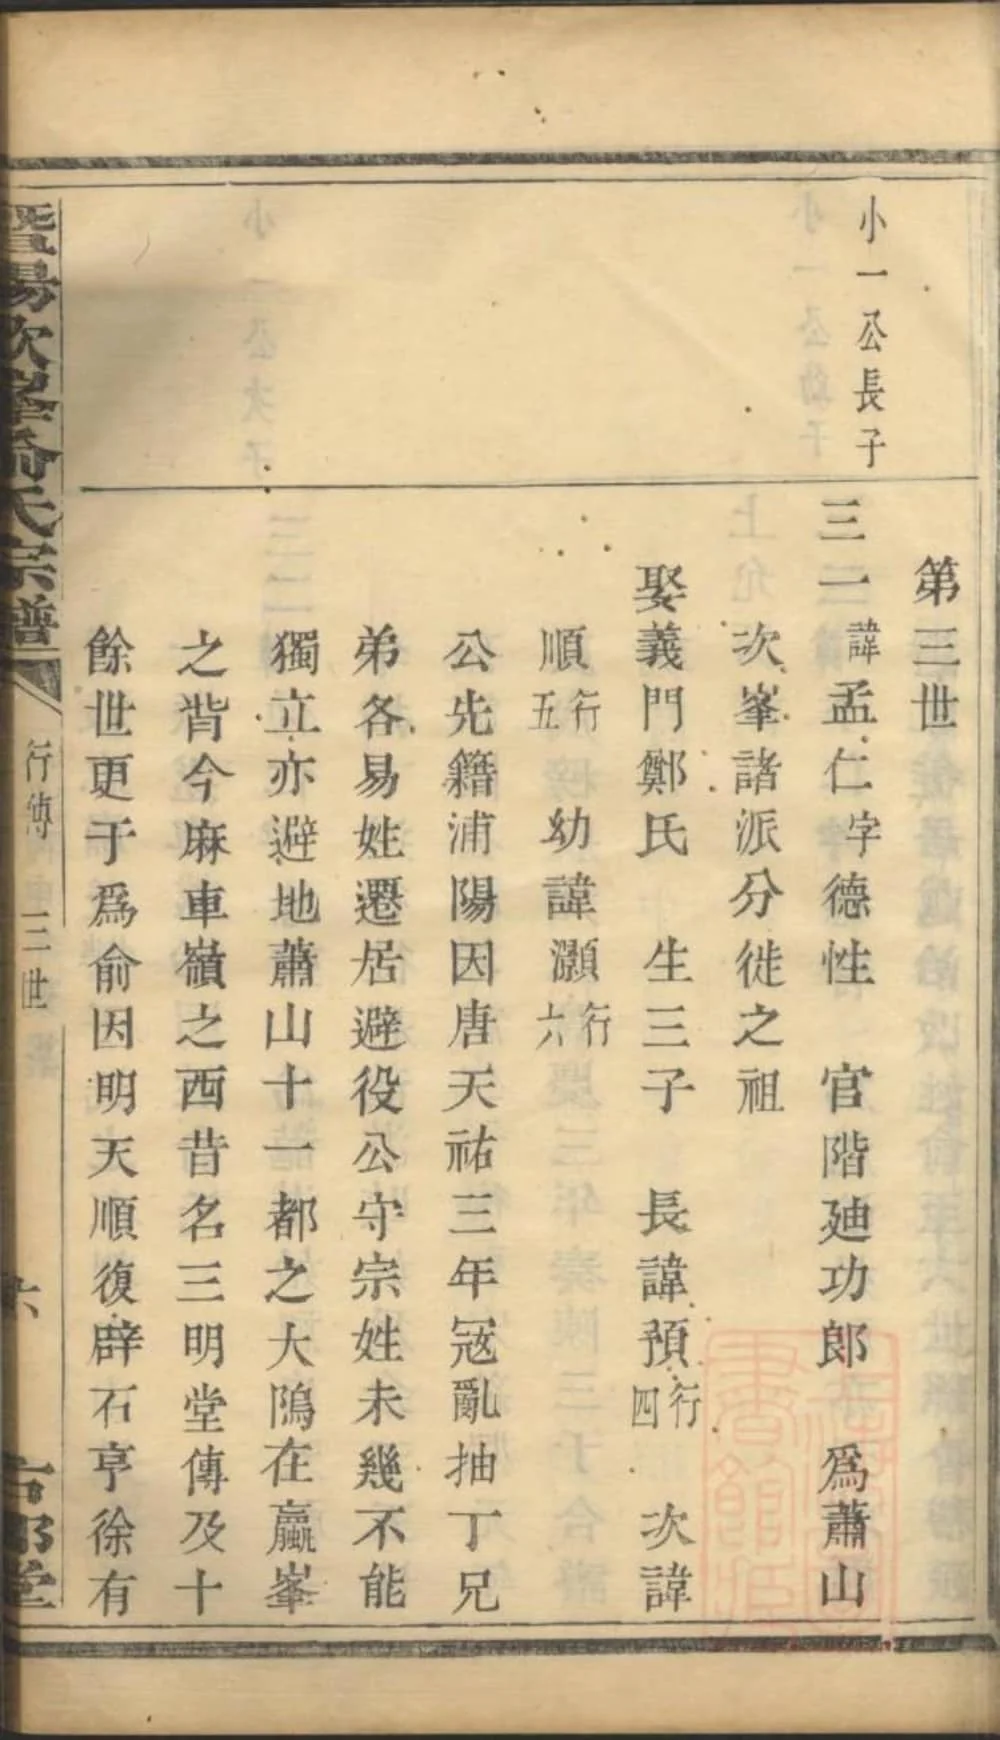 小一公長子
第三世
三一諱孟仁字德性　官階迪功郎　爲蕭山
次峯諸派分徙之祖
娶義門鄭氏　生三子　長諱預行四　次諱
順行五　幼諱灝行六
公先籍浦陽因唐天祐三年冦亂抽丁兄
弟各易姓遷居避役公守宗姓未幾不能
獨立亦避地蕭山十一都之大隖在贏峯
之背今麻車嶺之西昔名三明堂傳及十
餘世更于爲俞因明天順復辟石亨徐有
暨陽次峯俞氏宗譜
行傳
三世
六